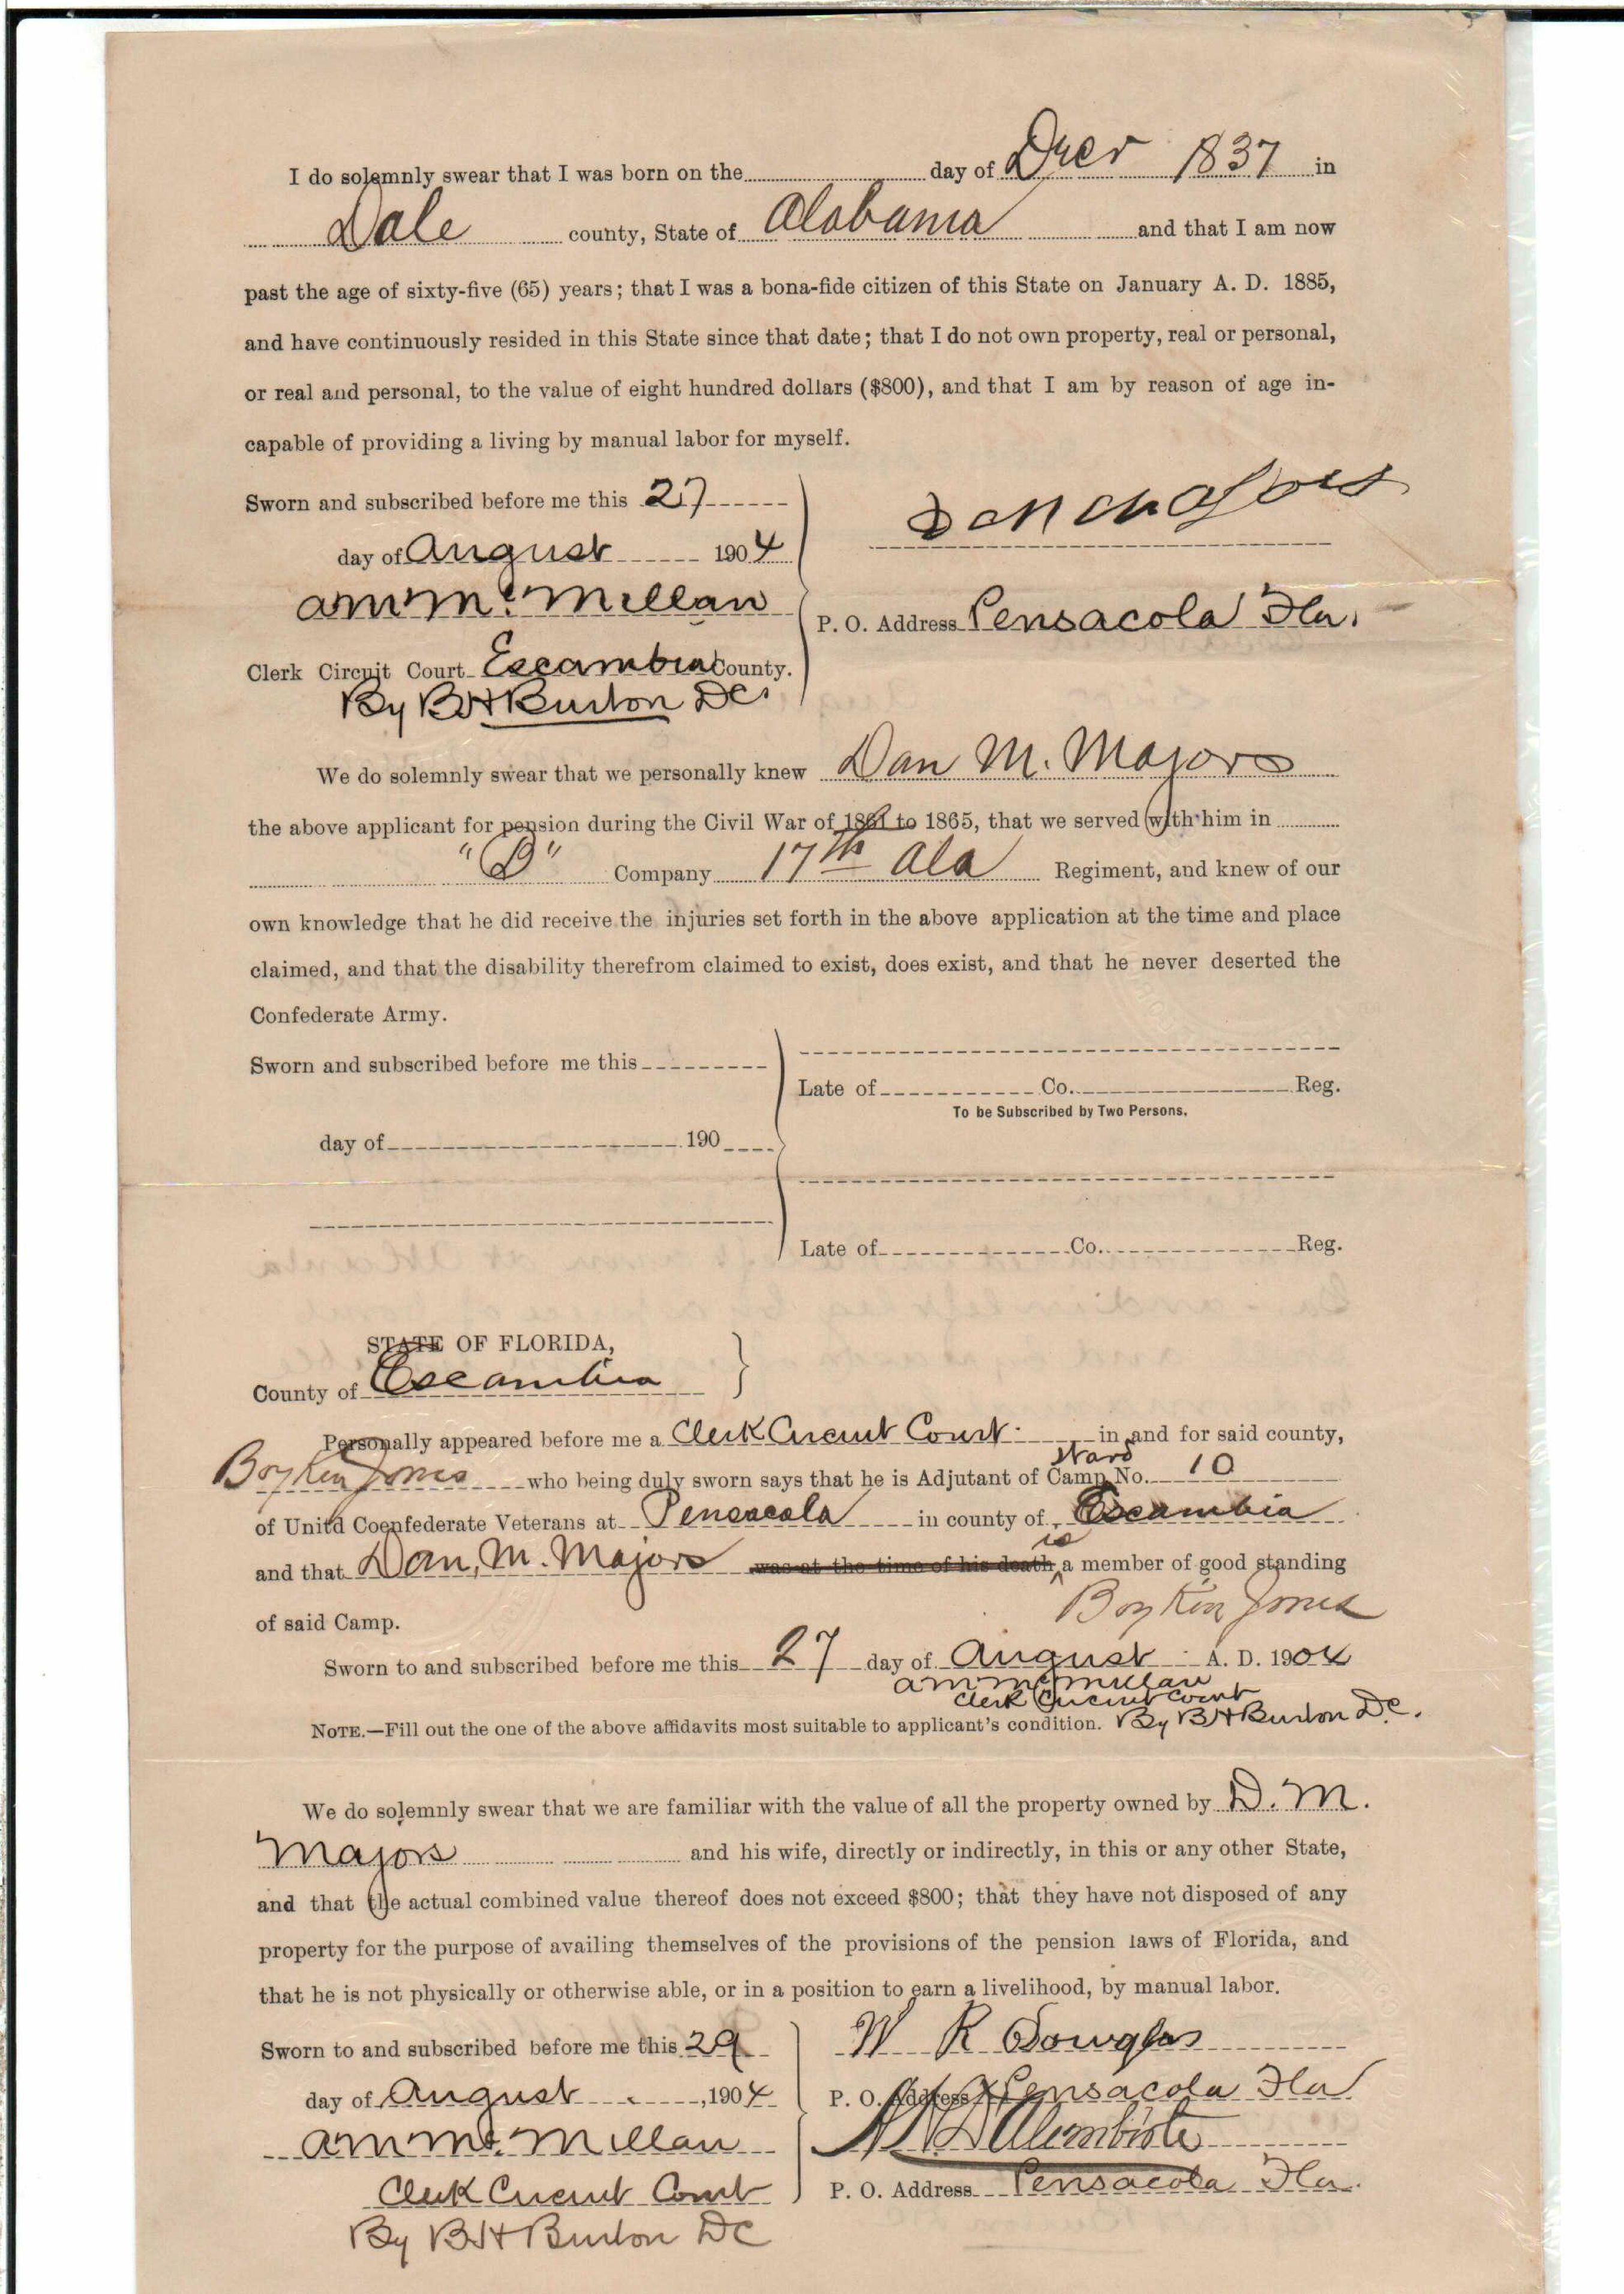 I do solemnly swear that I was born on the day of 1837 in
Dale county, State of Alabama and that I am now
past the age of sixty-five (65) years; that I was a bona-fide citizen of this State on January A. D. 1885,
and have continuously resided in this State since that date; that I do not own property, real or personal,
or real and personal, to the value of eight hundred dollars ($800), and that I am by reason of age in-
capable of providing a living by manual labor for myself.
Sworn and subscribed before me this 27
day of August 1904
A M Mc Millan
Clerk Circuit Court Escambia County.
By B H Burton DC.
Dan M Majors
P. O. Address Pensacola Fla.
We do solemnly swear that we personally knew Dan M. Majors
the above applicant for pension during the Civil War of 1861 to 1865, that we served with him in
"D" Company 17th Ala Regiment, and knew of our
own knowledge that he did receive the injuries set forth in the above application at the time and place
claimed, and that the disability therefrom claimed to exist, does exist, and that he never deserted the
Confederate Army.
Sworn and subscribed before me this
day of 190
Late of Co. Reg.
To be Subscribed by Two Persons.
Late of Co. Reg.
STATE OF FLORIDA,
County of Escambia
Personally appeared before me a Clerk Circuit Court in and for said county,
Boykin Jones who being duly sworn says that he is Adjutant of Ward Camp No. 10
of Unitd Coenfederate Veterans at Pensacola in county of Escambia
and that Dan, M. Majors was at the time of his death is a member of good standing
of said Camp.
Boykin Jones
Sworn to and subscribed before me this 27 day of August A. D. 1904
A M Mc Millan
Clerk Circuit Court
NOTE.—Fill out the one of the above affidavits most suitable to applicant's condition. By B H Burton D.C.
We do solemnly swear that we are familiar with the value of all the property owned by D. M.
Majors and his wife, directly or indirectly, in this or any other State,
and that the actual combined value thereof does not exceed $800; that they have not disposed of any
property for the purpose of availing themselves of the provisions of the pension laws of Florida, and
that he is not physically or otherwise able, or in a position to earn a livelihood, by manual labor.
Sworn to and subscribed before me this 29
day of August , 1904
A M Mc. Millan
Clerk Circuit Court
By B H Burton DC
W R Douglas
P. O. Address Pensacola Fla
P. O. Address Pensacola Fla.